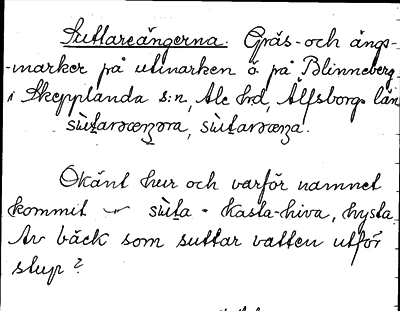 Suttareängerna. Gräs- och ängs-
-marker på utmarken ö. på Blinneberg
i Skepplanda s:n, Ale hd, Älfsborgs län
Okänt hur och varför namnet
kommit - sùta - kasta-hiva, hysta.
Av bäck som suttar vatten utför
stup?